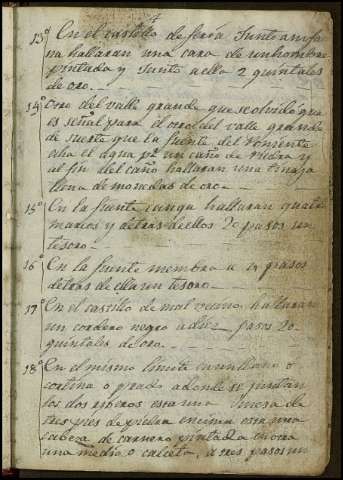 4
13º En el castillo de fera Junto a
na hallaran una cara de un hombre
pintada y Junto aella 2 quintales
de oro.
14º Oro del valle grande que se olvidó que
es señal para el oro del valle grande
de suerte que la fuente del
echa el agua pr un caño de Piedra y
al fin del caño hallaran una tinaja
llena de monedas de oro.
15º En la fuente hallaran quatro
y detras de ellos 20 pasos un
tesoro
16º En la fuente a 14 pasos
detras de ella un tesoro
17º En el castillo de mal vecino hallaran
un cordero negro a diez pasos 20
quintales de oro
18º En el mismo limite
cortina o prado adonde se juntan
los dos esta una de
tres pies de piedra encima esta una
cabeza de carnero pintada
una media o calceta, a tres pasos un